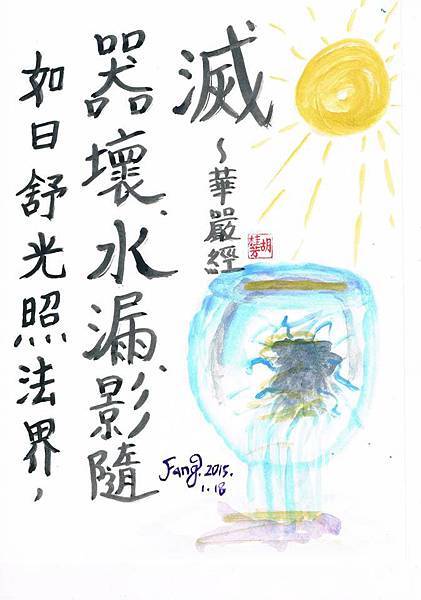 如日舒光照法界，
器壞、水漏、影隨
滅
～華嚴經
胡桂芳
Fang. 2015.
1.18